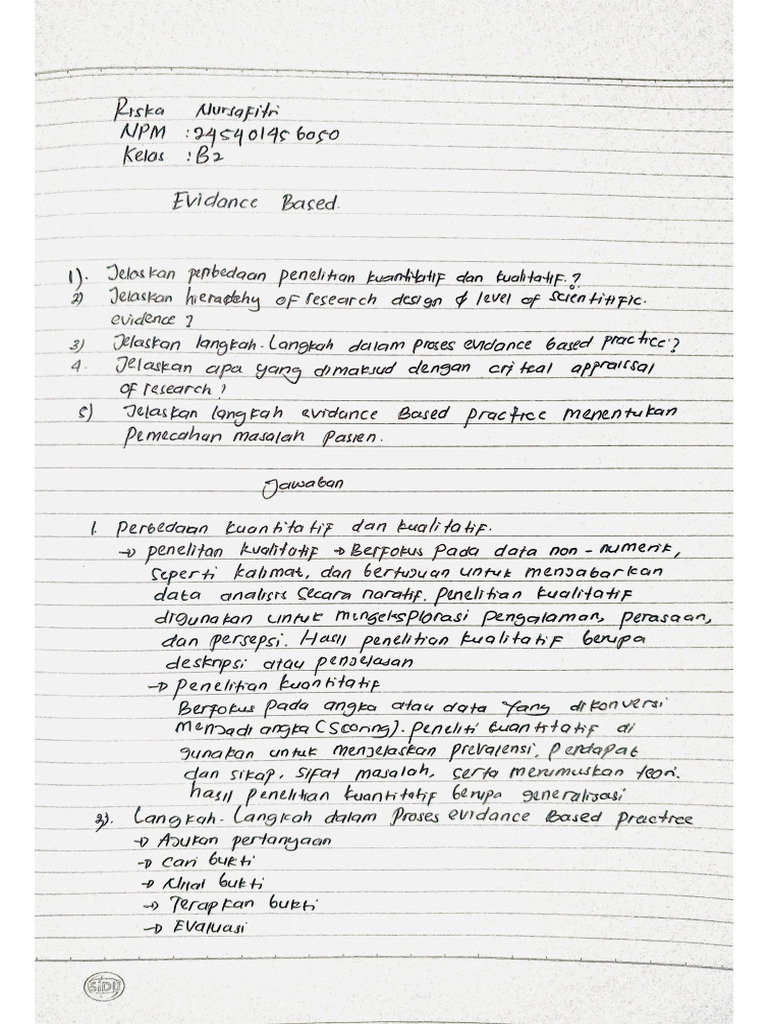 Riska Nursafitri
NPM : 245401456050
Kelas : B2
Evidance Based.
1). Jelaskan perbedaan penelitian kuantitatif dan kualitatif.?
2) Jelaskan hierarchy of research design & level of scientitific.
evidence ?
3) Jelaskan langkah-langkah dalam proses evidance based practice?
4. Jelaskan apa yang dimaksud dengan critical appraissal
of research ?
5) Jelaskan langkah evidance Based practice menentukan
Pemecahan masalah pasien.
Jawaban
1. Perbedaan kuantitatif dan kualitatif.
→ penelitan kualitatif → Berfokus pada data non-numerik,
seperti kalimat, dan bertujuan untuk menjabarkan
data analisis secara naratif. Penelitian kualitatif
digunakan untuk mengeksplorasi pengalaman, perasaan,
dan persepsi. Hasil penelitian kualitatif berupa
deskripsi atau penjelasan
→ Penelitian kuantitatif
Berfokus pada angka atau data yang dikonversi
menjadi angka (Scoring). peneliti kuantitatif di
gunakan untuk menjelaskan prevalensi, pendapat
dan sikap, sifat masalah, serta merumuskan teori.
hasil penelitian kuantitatif berupa generalisasi
3). Langkah-Langkah dalam Proses evidance Based practice
→ Ajukan pertanyaan
→ Cari bukti
→ Nilai bukti
→ Terapkan bukti
→ Evaluasi
SiDU